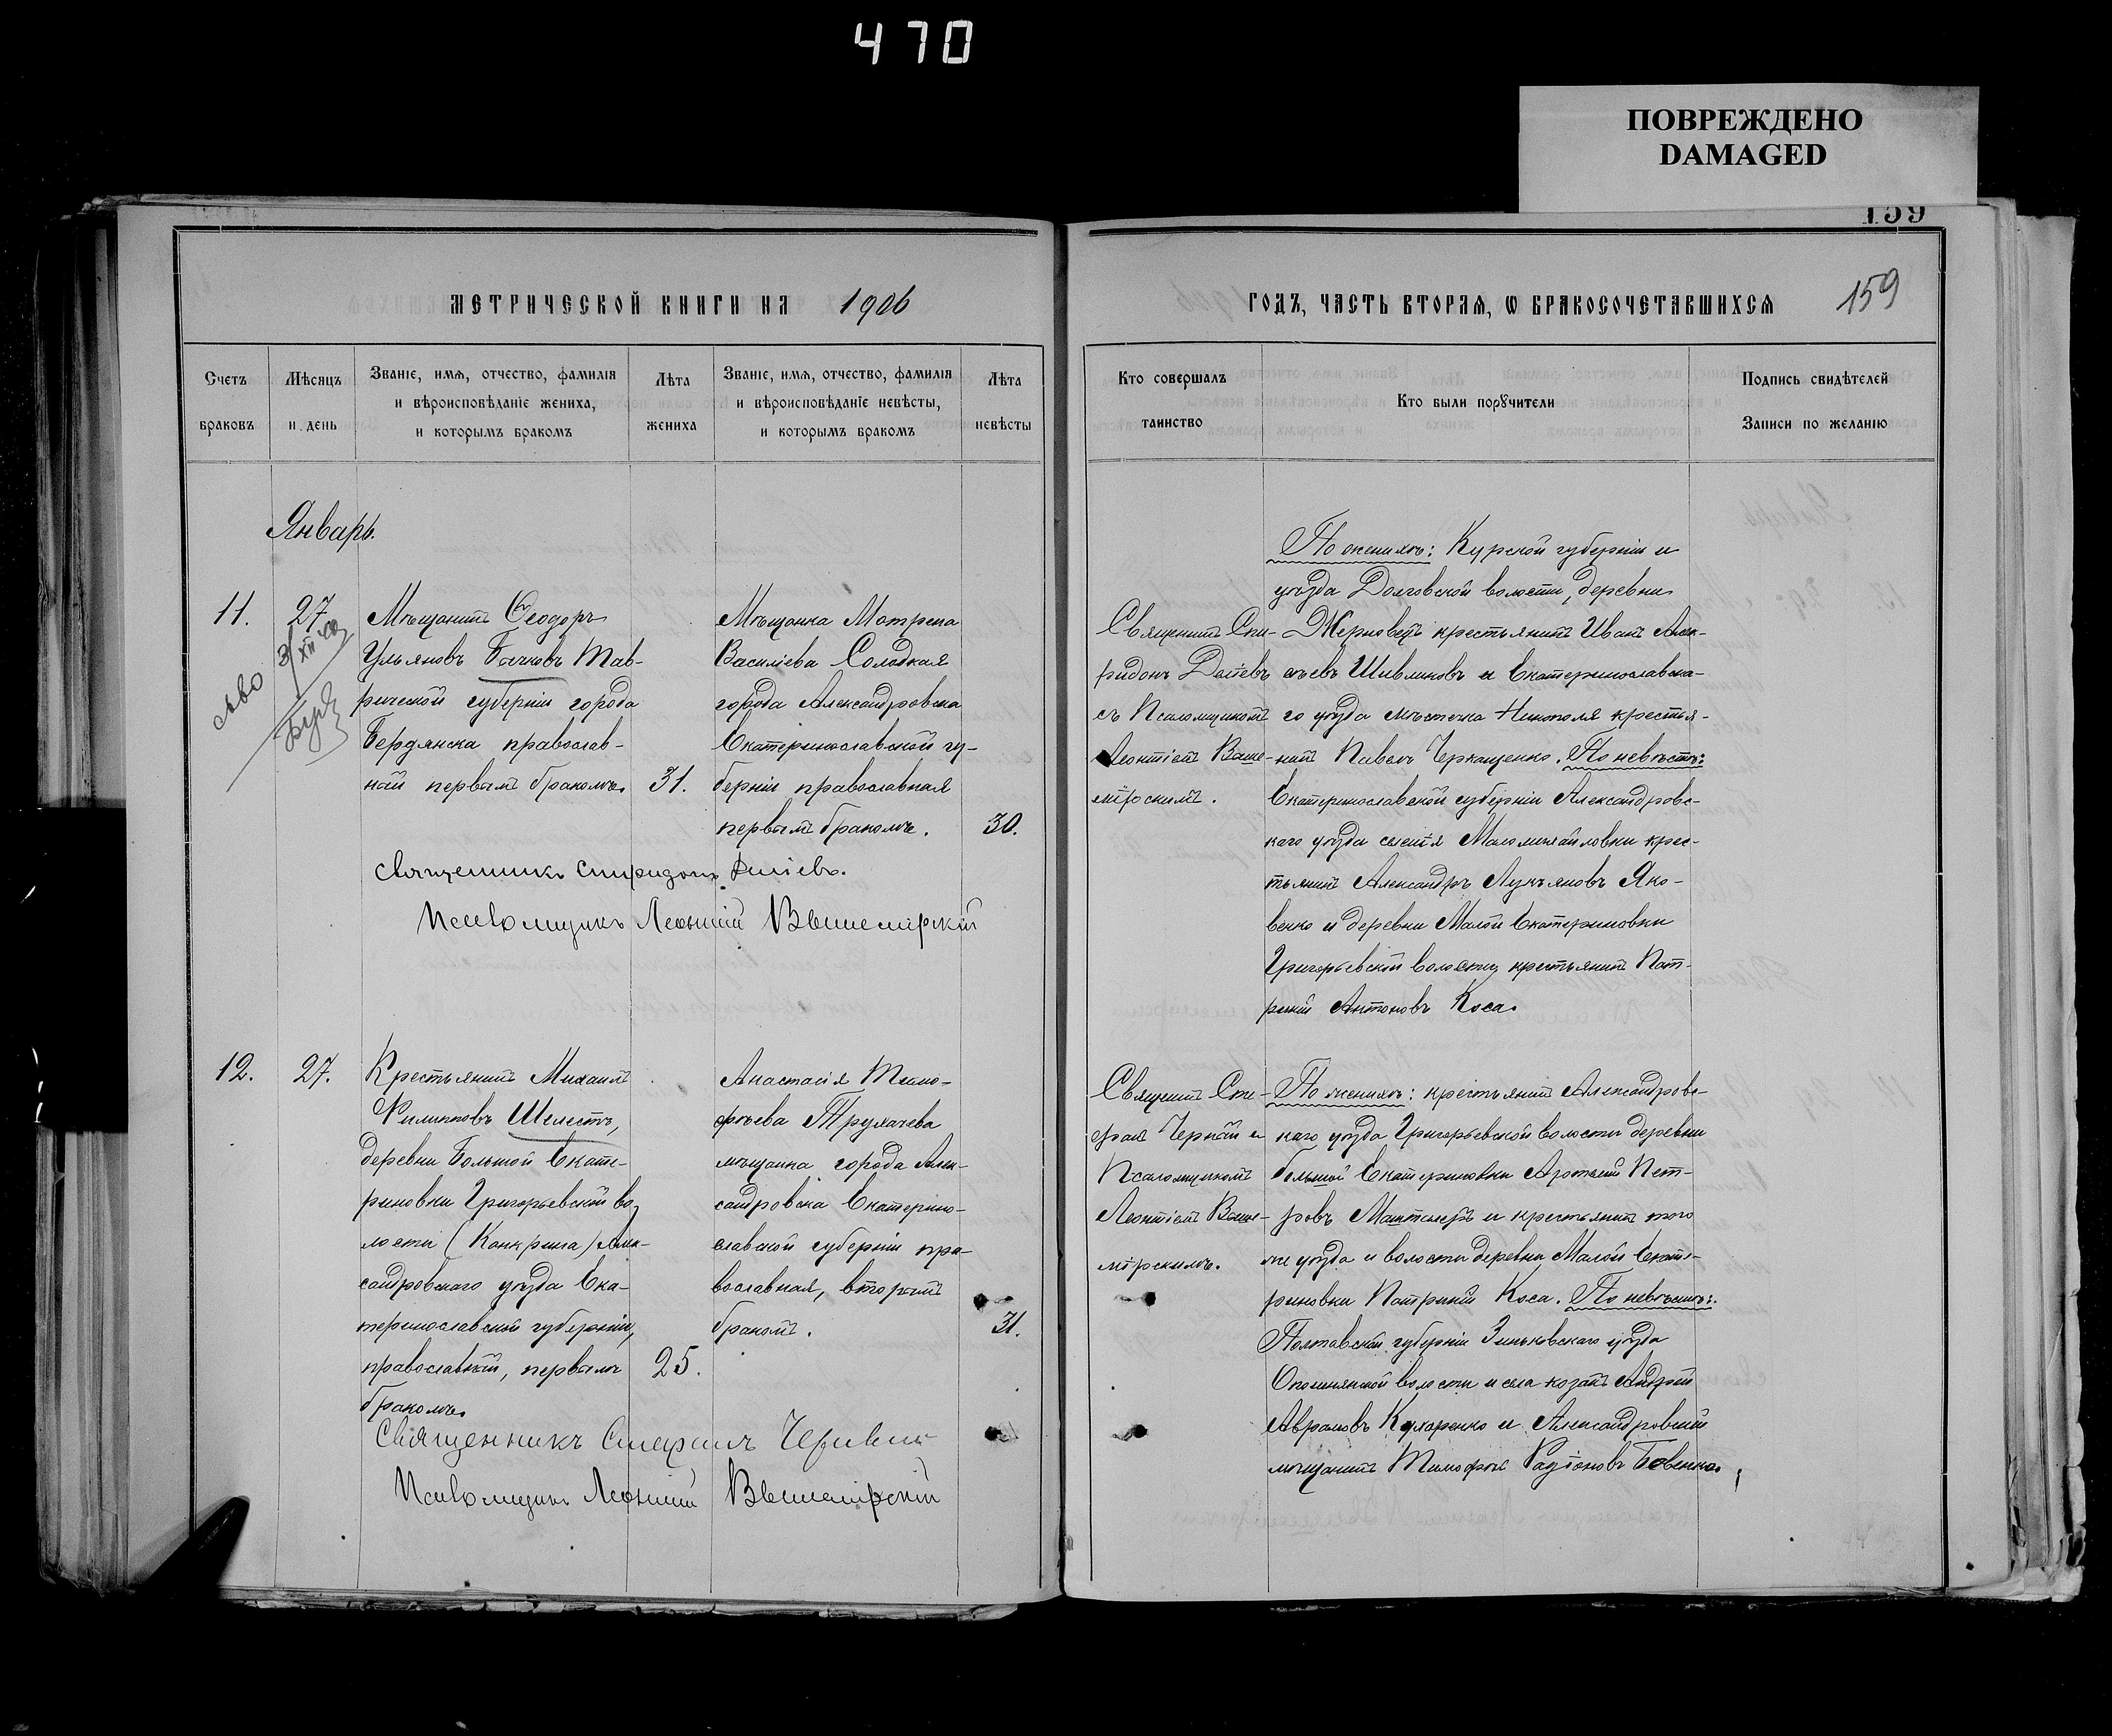 470
ПОВРЕЖДЕНО
DAMAGED
159
МЕТРИЧЕСКОЙ КНИГИ НА 1906
ГОДЪ, ЧАСТЬ ВТОРАЯ, Ѡ БРАКОСОЧЕТАВШИХСЯ
159
Счетъ
браковъ
Мѣсяцъ
и день
Званіе, имя, отчество, фамилія
и вѣроисповѣданіе жениха,
и которымъ бракомъ
Лѣта
жениха
Званіе, имя, отчество, фамилія
и вѣроисповѣданіе невѣсты,
и которымъ бракомъ
Лѣта
невѣсты
Кто совершалъ
таинство
Кто были порꙋчители
Подпись свидѣтелей
Записи по желанію
Январь.
11.
27
Мѣщанинъ Ѳеодоръ
Ульяновъ Бачковъ Тав-
рической губерніи города
Бердянска православ-
ный первымъ бракомъ.
31.
Мѣщанка Матрена
Василіева Солодкая
города Александровска
Екатеринославской гу-
берніи православная
первымъ бракомъ.
30.
Священникъ Спиридонъ
Псаломщикъ Леонтій Вышемірскій
Священникъ Спи-
ридонъ
съ Псаломщикомъ
Леонтіемъ Выше-
мірскимъ.
По женихѣ: Курской губерніи и
уѣзда Долговской волости, деревни
Жерновецъ крестьянинъ Иванъ Алек-
сѣевъ Шивлиновъ и Екатеринославска-
го уѣзда мѣстечка Никополя крестья-
нинъ Павелъ Черкащенко. По невѣстѣ:
Екатеринославской губерніи Александровс-
каго уѣзда селенія Маломихайловки крес-
тьянинъ Александръ Лукъяновъ Яко-
венко и деревни Малой Екатериновки
Григорьевской волости крестьянинъ Пат-
рикій Антоновъ Коса.
12.
27.
Крестьянинъ Михаилъ
Филипповъ Шелестъ,
деревни Большой Екате-
риновки Григорьевской во-
лости (Канкрина) Алек-
сандровскаго уѣзда Ека-
теринославской губерніи,
православный, первымъ
бракомъ.
25.
Анастасія Тимо-
фѣева Трухачева
мѣщанка города Алек-
сандровска Екатерино-
славской губерніи пра-
вославная, вторымъ
бракомъ.
31.
Священникъ Стефанъ
Псаломщикъ Леонтій Вышемірскій
Священникъ Сте-
фанъ и
Псаломщикомъ
Леонтіемъ Выше-
мірскимъ.
По женихѣ: крестьянинъ Александровс-
каго уѣзда Григорьевской волости деревни
большой Екатериновки Пет-
ровъ и крестьянинъ того
же уѣзда и волости деревни Малой Екате-
риновки Патрикій Коса. По невѣстѣ:
Полтавской губерніи Зиньковскаго уѣзда
Опошнянской волости и села козакъ Андрей
Аврамовъ Кухаренко и Александровскій
мѣщанинъ Тимофей Радіоновъ Бовенко.